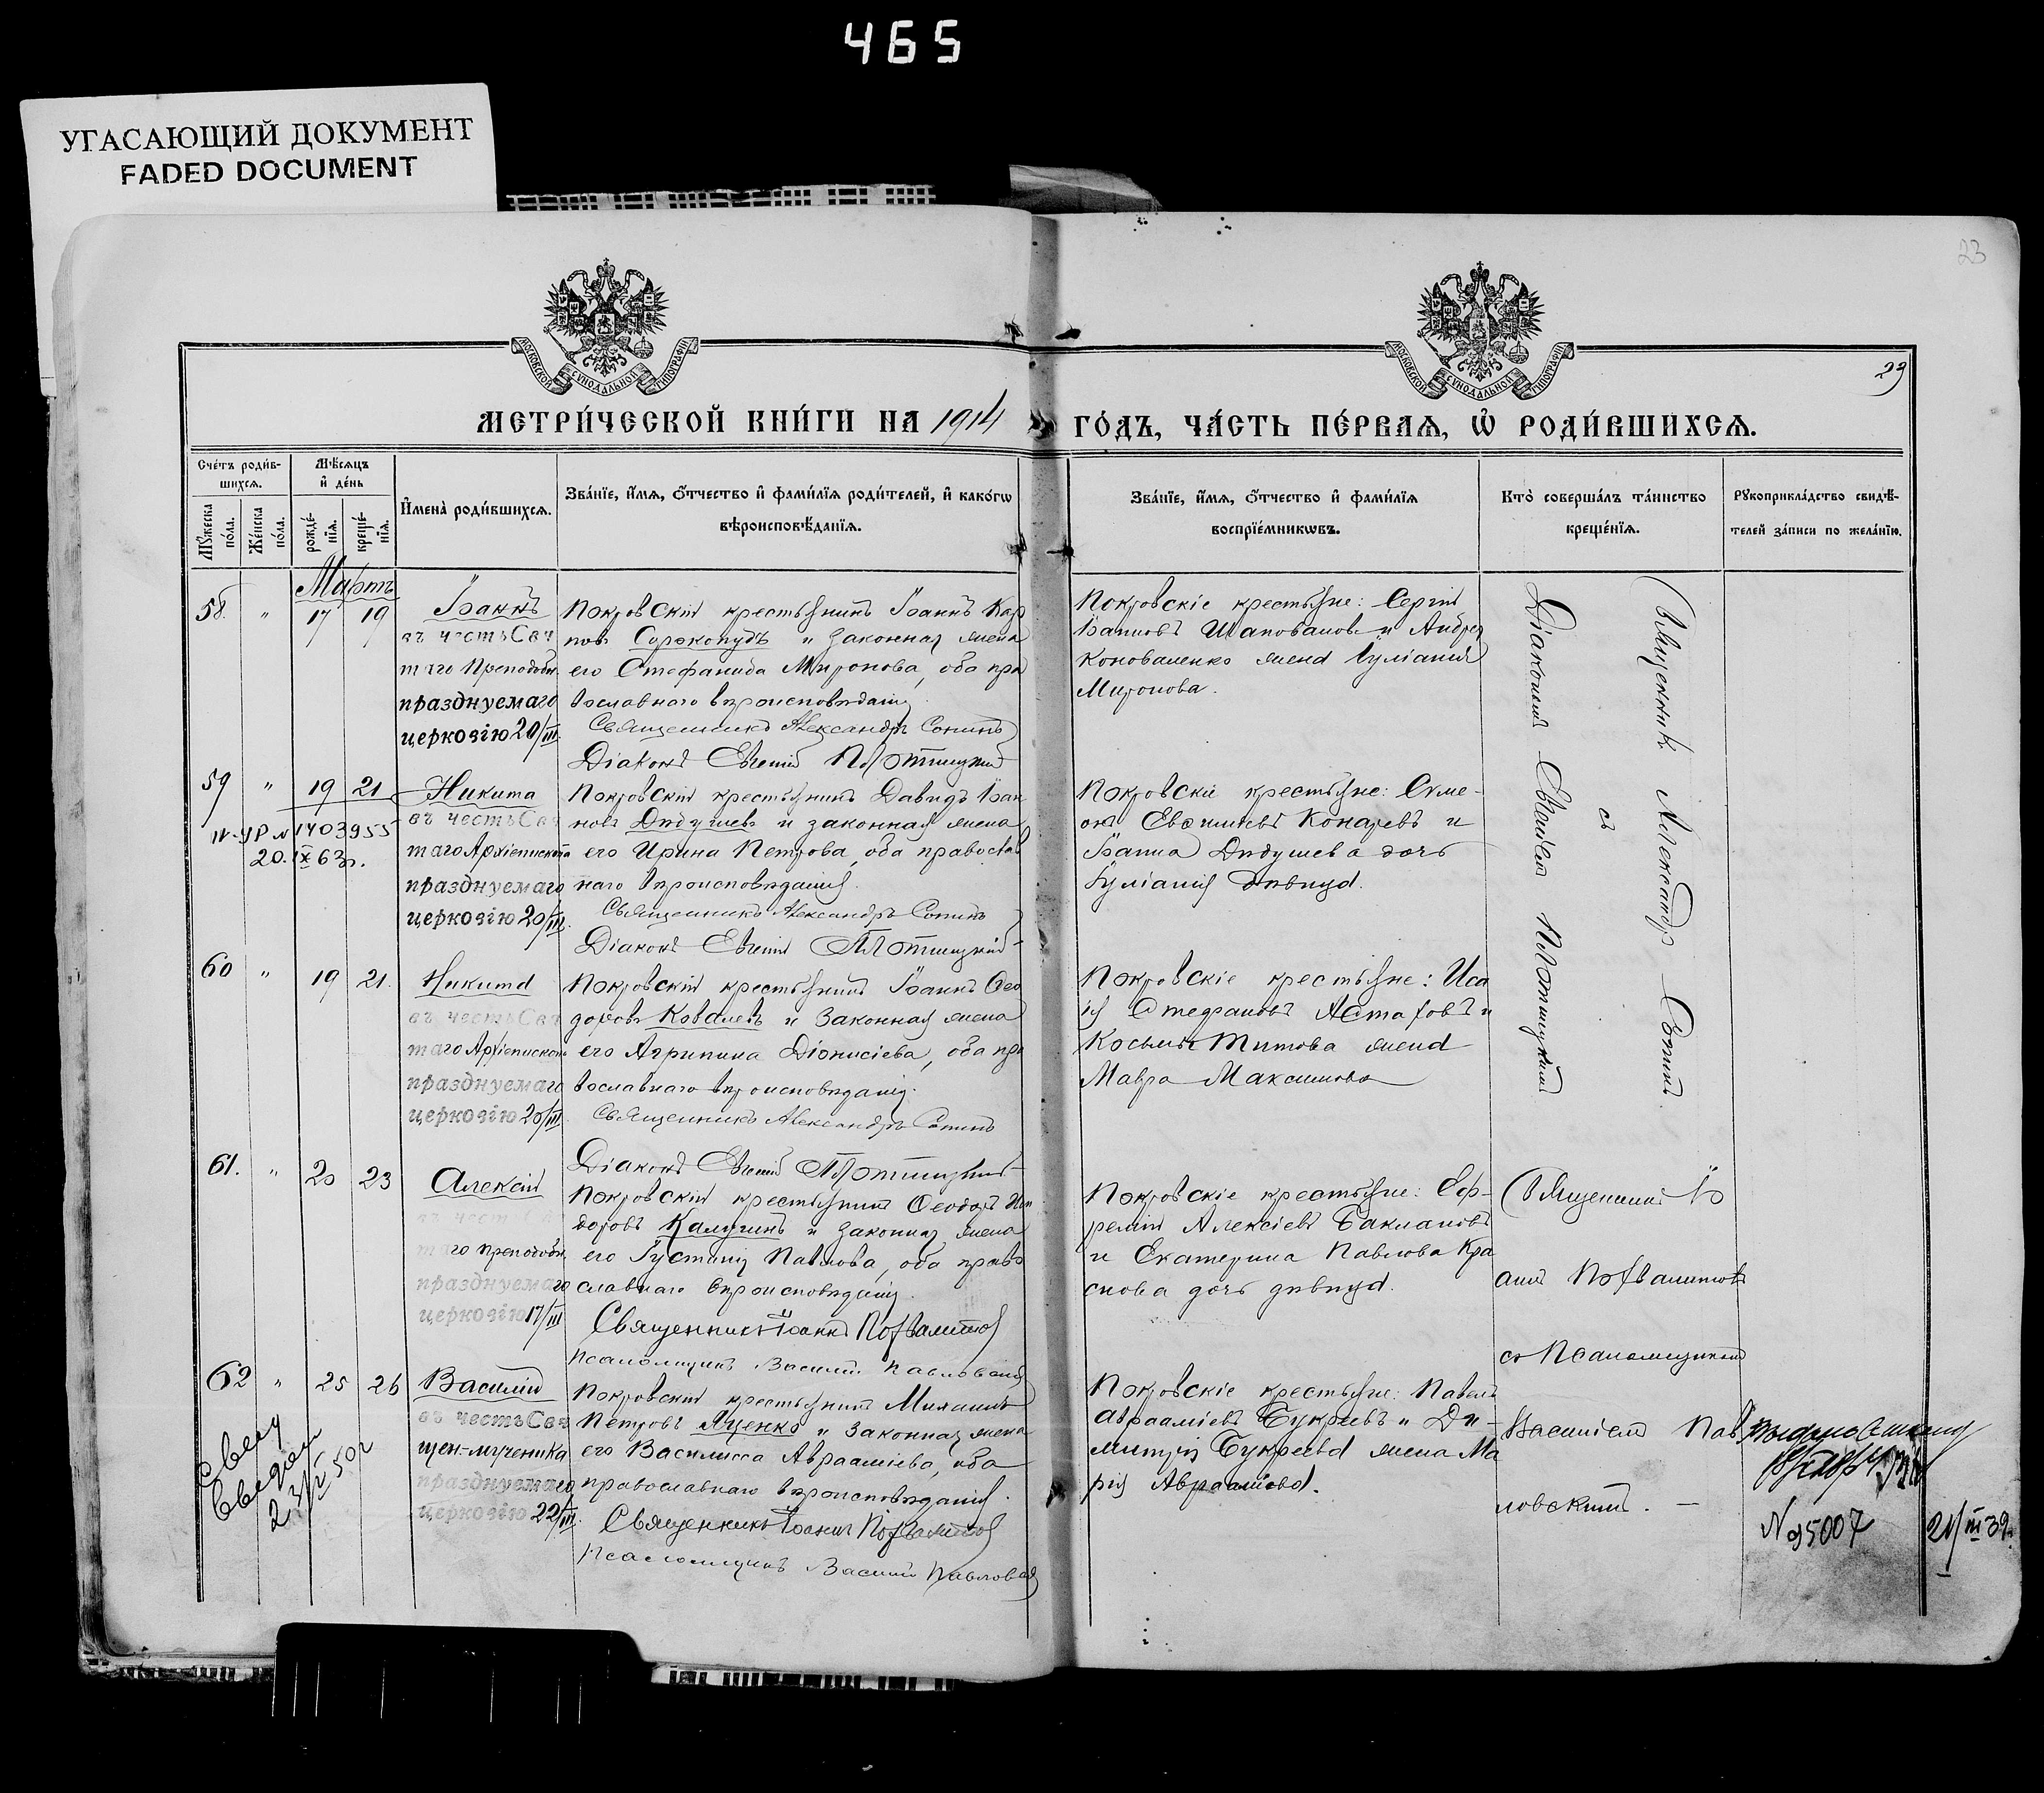 465
УГАСАЮЩИЙ ДОКУМЕНТ
FADED DOCUMENT
23
МОСКОВСКОЙ СѴНОДАЛЬНОЙ ТИПОГРАФІИ
МОСКОВСКОЙ СѴНОДАЛЬНОЙ ТИПОГРАФІИ
23
МЕТРИ́ЧЕСКОЙ КНИ́ГИ НА 1914 ГО́ДЪ, ЧА́СТЬ ПЕ́РВАѦ, Ѡ҆ РОДИ́ВШИХСѦ.
Сче́тъ роди́в-
шихсѧ.
Мꙋ́жеска по́ла.
Же́нска по́ла.
Мѣ́сѧцъ
и҆ де́нь
рожде́-
нїѧ.
креще́-
нїѧ.
И҆мена̀ роди́вшихсѧ.
Зва́нїе, и҆́мѧ, ѻ҆́тчество и҆ фами́лїѧ роди́телей, и҆ како́гѡ
вѣроисповѣ́данїѧ.
Зва́нїе, и҆́мѧ, ѻ҆́тчество и҆ фами́лїѧ
воспрїе́мникѡвъ.
Кто̀ соверша́лъ та́инство
креще́нїѧ.
Рꙋкоприкла́дство свидѣ́-
телей за́писи по жела́нїю.
Мартъ
58. " 17 19 Іоаннъ
въ честь Свѧ
таго Преподобн.
празднуемаго
церковію 20/III.
Покровскій крестьянинъ Іоаннъ Кар
повъ Сорокопудъ и законная жена
его Стефанида Миронова, оба пра
вославнаго вѣроисповѣданія.
Священникъ Александръ Сонинъ
Діаконъ Евгеній Плотницкій
Покровскіе крестьяне: Сергій
Іоанновъ Шаповаловъ и Андрея
Коноваленко жена Іуліанія
Миронова.
59 " 19 21 Никита
въ честь Свѧ
таго Архіепископа
празднуемаго
церковію 20/III.
1403955
20.IX 63г.
Покровскій крестьянинъ Давидъ Іоан
новъ Дѣдушевъ и законная жена
его Ирина Петрова, оба православ
наго вѣроисповѣданія.
Священникъ Александръ Сонинъ
Діаконъ Евгеній Плотницкій
Покровскіе крестьяне: Симе-
онъ Конаревъ и
Іоанна Дѣдушева дочь
Іуліанія дѣвица.
60 " 19 21. Никита
въ честь Свѧ
таго Архіепископа
празднуемаго
церковію 20/III.
Покровскій крестьянинъ Іоаннъ Ѳео
доровъ Ковалевъ и законная жена
его Агрипина Діонисіева, оба пра
вославнаго вѣроисповѣданія.
Священникъ Александръ Сонинъ
Діаконъ Евгеній Плотницкій
Покровскіе крестьяне: Иса
ія Стефановъ Астаховъ и
Космы Титова жена
Мавра Максимова
Священникъ Александръ Сонинъ
съ
Діакономъ Евгеніемъ Плотницкимъ
61. " 20 23 Алексій
въ честь Свѧ
таго преподобн.
празднуемаго
церковію 17/III
Покровскій крестьянинъ Ѳеодоръ
Калугинъ и законная жена
его Іустинія Павлова, оба право
славнаго вѣроисповѣданія.
Священникъ Іоаннъ Похвалитовъ
Псаломщикъ Василій Павловскій
Покровскіе крестьяне: Еф-
ремій Алексіевъ Баклановъ
и Екатерина Павлова Кра
снова дочь дѣвица.
Священникъ Іо
аннъ Похвалитовъ
съ Псаломщикомъ
Василіемъ Пав
ловскимъ. —
62 " 25 26 Василій
въ честь Свѧ
щен-мученика
празднуемаго
церковію 22/III.
23/V 50г
Покровскій крестьянинъ Михаилъ
Петровъ Яценко и законная жена
его Василисса Авраамиева, оба
православнаго вѣроисповѣданія.
Священникъ Іоаннъ Похвалитовъ
Псаломщикъ Василій Павловскій
Покровскіе крестьяне: Павелъ
Авраамиевъ Букреевъ и Ди-
митрія Букреева жена Ма
рія Авраамиева.
№ 95007
21/III 39г.